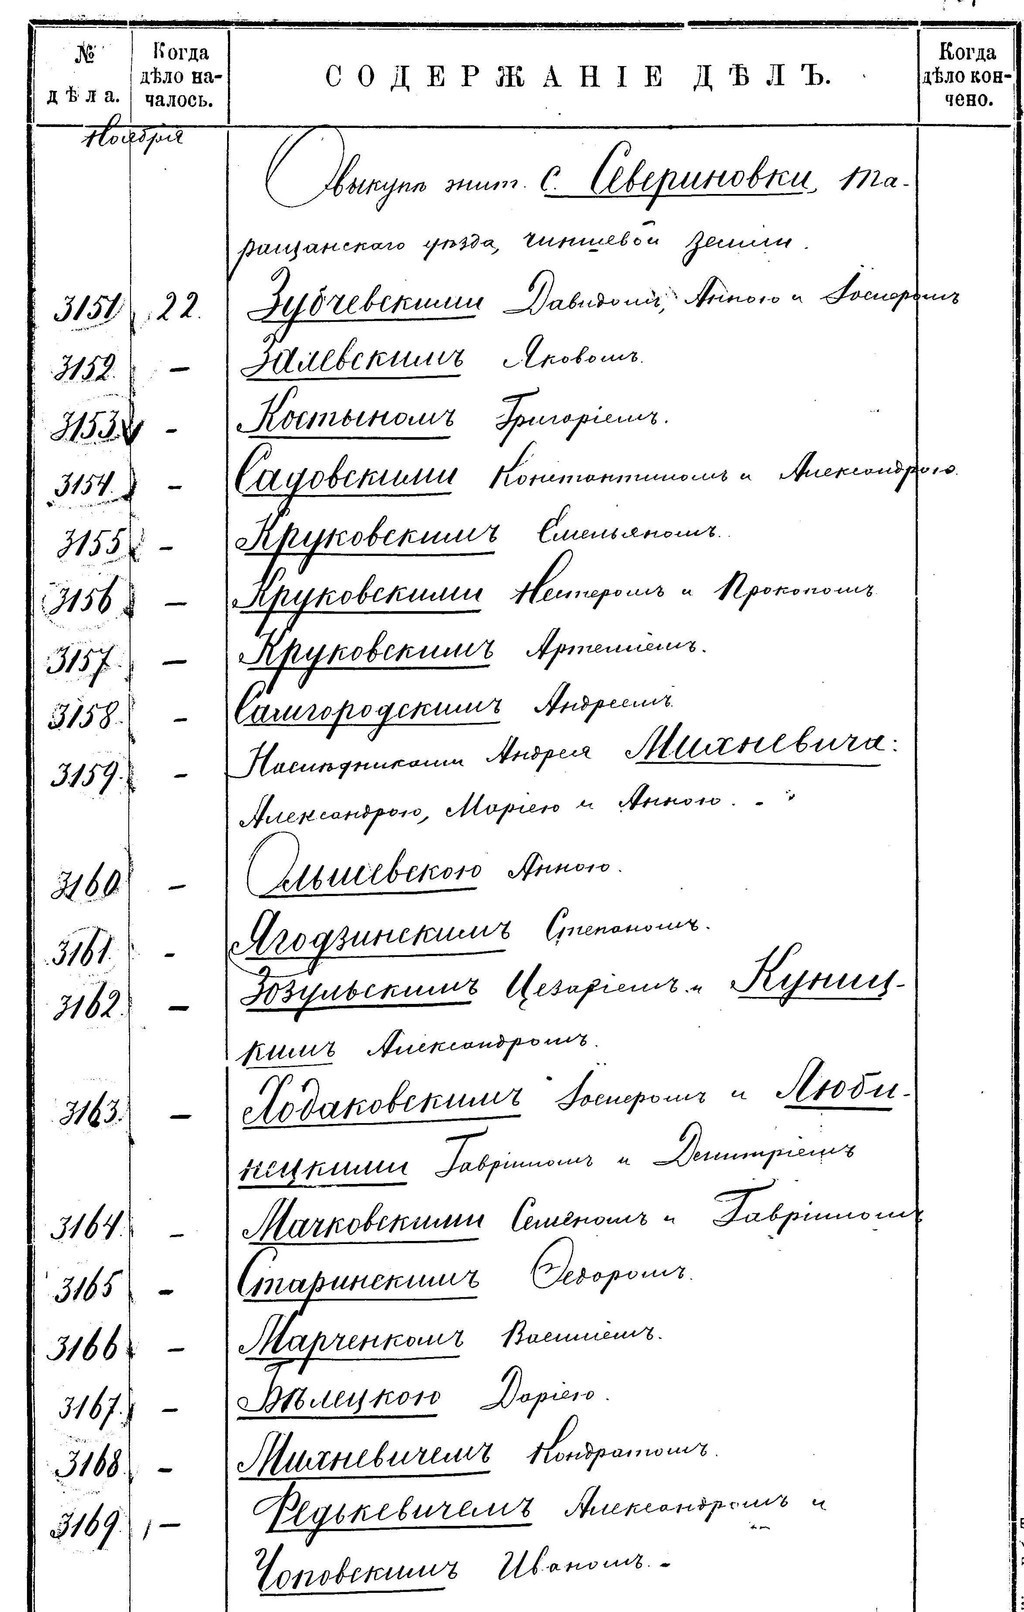 № дѣла.
Когда дѣло началось.
СОДЕРЖАНІЕ ДѢЛЪ.
Когда дѣло кончено.
Ноября
О выкупѣ жит. с. Севериновки, Та-
ращанскаго уѣзда, чиншевой земли.
3151 22. Зубчевскими Давидомъ, Анною и Іосифомъ
3152. — Залевскимъ Яковомъ.
3153 — Костыномъ Григоріемъ.
3154. — Садовскими Константиномъ и Александрою.
3155 — Круковскимъ Емельяномъ.
3156 — Круковскими Нестеромъ и Прокопомъ
3157. — Круковскимъ Артеміемъ.
3158. — Самгородскимъ Андреемъ.
3159. — Наслѣдниками Андрея Михневича:
Александрою, Маріею и Анною. -"
3160 — Ольшевскою Анною.
3161. — Ягодзинскимъ Степаномъ.
3162 — Зозульскимъ Цезаріемъ и Куниц-
кимъ Александромъ.
3163. — Ходаковскимъ Іосифомъ и Люби-
нецкими Гавріиломъ и Димитріемъ
3164. — Мачковскими Семеномъ и Гавріиломъ
3165 — Старинскимъ Ѳедоромъ.
3166 — Марченкомъ Василіемъ.
3167. — Бѣлецкою Даріею.
3168 — Михневичемъ Кондратомъ.
3169. — Редькевичемъ Александромъ и
Чоповскимъ Иваномъ. -